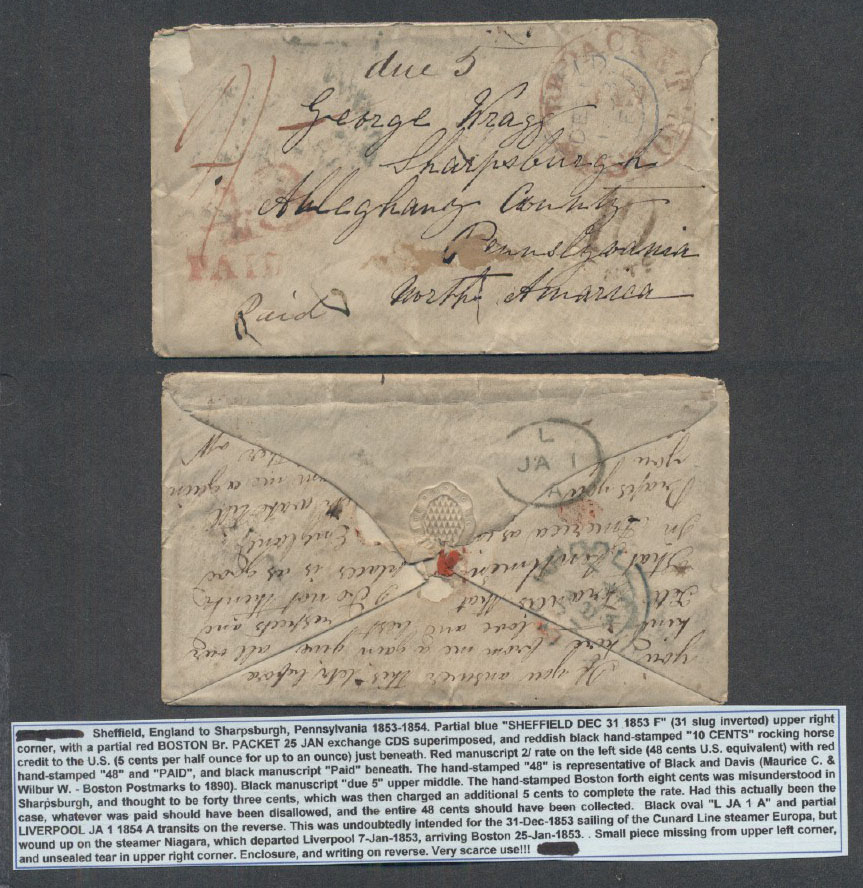 due 5
George Wragg
Sharpsburgh
Alleghany County
Pennsylvania
North Amarica
Paid
PAID
10
PACKET
L
JA 1
A
If you answer this letr before
you here from me again give all our
kind love and best respects and
Tell Francis that I do not think
that Amarica places is as good
In America as England
Sheffield, England to Sharpsburgh, Pennsylvania 1853-1854. Partial blue "SHEFFIELD DEC 31 1853 F" (31 slug inverted) upper right
corner, with a partial red BOSTON Br. PACKET 25 JAN exchange CDS superimposed, and reddish black hand-stamped "10 CENTS" rocking horse
credit to the U.S. (5 cents per half ounce for up to an ounce) just beneath. Red manuscript 2/ rate on the left side (48 cents U.S. equivalent) with red
hand-stamped "48" and "PAID", and black manuscript "Paid" beneath. The hand-stamped "48" is representative of Black and Davis (Maurice C. &
Wilbur W. - Boston Postmarks to 1890). Black manuscript "due 5" upper middle. The hand-stamped Boston forth eight cents was misunderstood in
Sharpsburgh, and thought to be forty three cents, which was then charged an additional 5 cents to complete the rate. Had this actually been the
case, whatever was paid should have been disallowed, and the entire 48 cents should have been collected. Black oval "L JA 1 A" and partial
LIVERPOOL JA 1 1854 A transits on the reverse. This was undoubtedly intended for the 31-Dec-1853 sailing of the Cunard Line steamer Europa, but
wound up on the steamer Niagara, which departed Liverpool 7-Jan-1853, arriving Boston 25-Jan-1853. . Small piece missing from upper left corner,
and unsealed tear in upper right corner. Enclosure, and writing on reverse. Very scarce use!!!